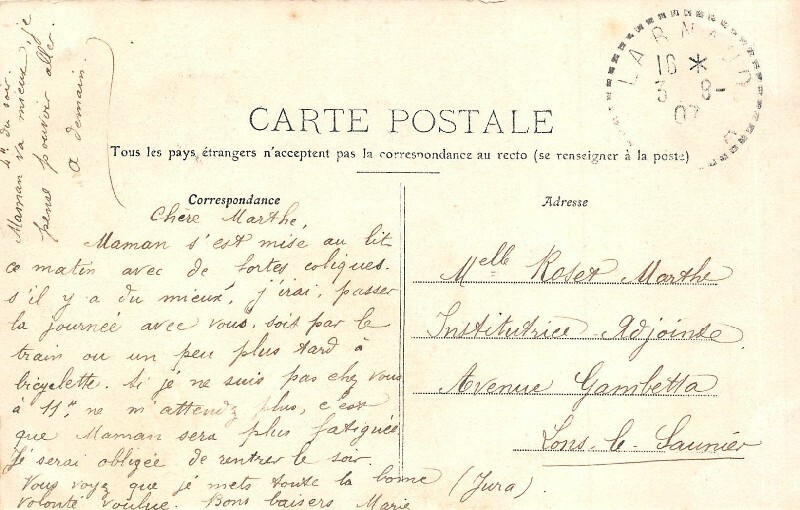 CARTE POSTALE
Tous les pays étrangers n'acceptent pas la correspondance au recto (se renseigner à la poste)
Correspondance
Chère Marthe,
Maman s'est misé au lit
ce matin avec de fortes coliques.
s'il y a du mieux, j'irai, passer
la journée avec vous, soit par le
train ou un peu plus tard à
bicyclette. Si je ne suis pas chez vous
à 11h, ne m'attendez plus, c'est
que Maman sera plus fatiguée
Je serai obligée de rentrer le soir.
Vous voyez que je mets toute la bonne
volonté voulue. Bons baisers Marie
4h du soir.
Maman va mieux, je
pense pouvoir aller.
A demain.
Adresse
Melle Roset Marthe
Institutrice Adjointe
Avenue Gambetta
Lons-le-Saunier
(Jura).
LARNAUD
16 *
3 - 8 -
07